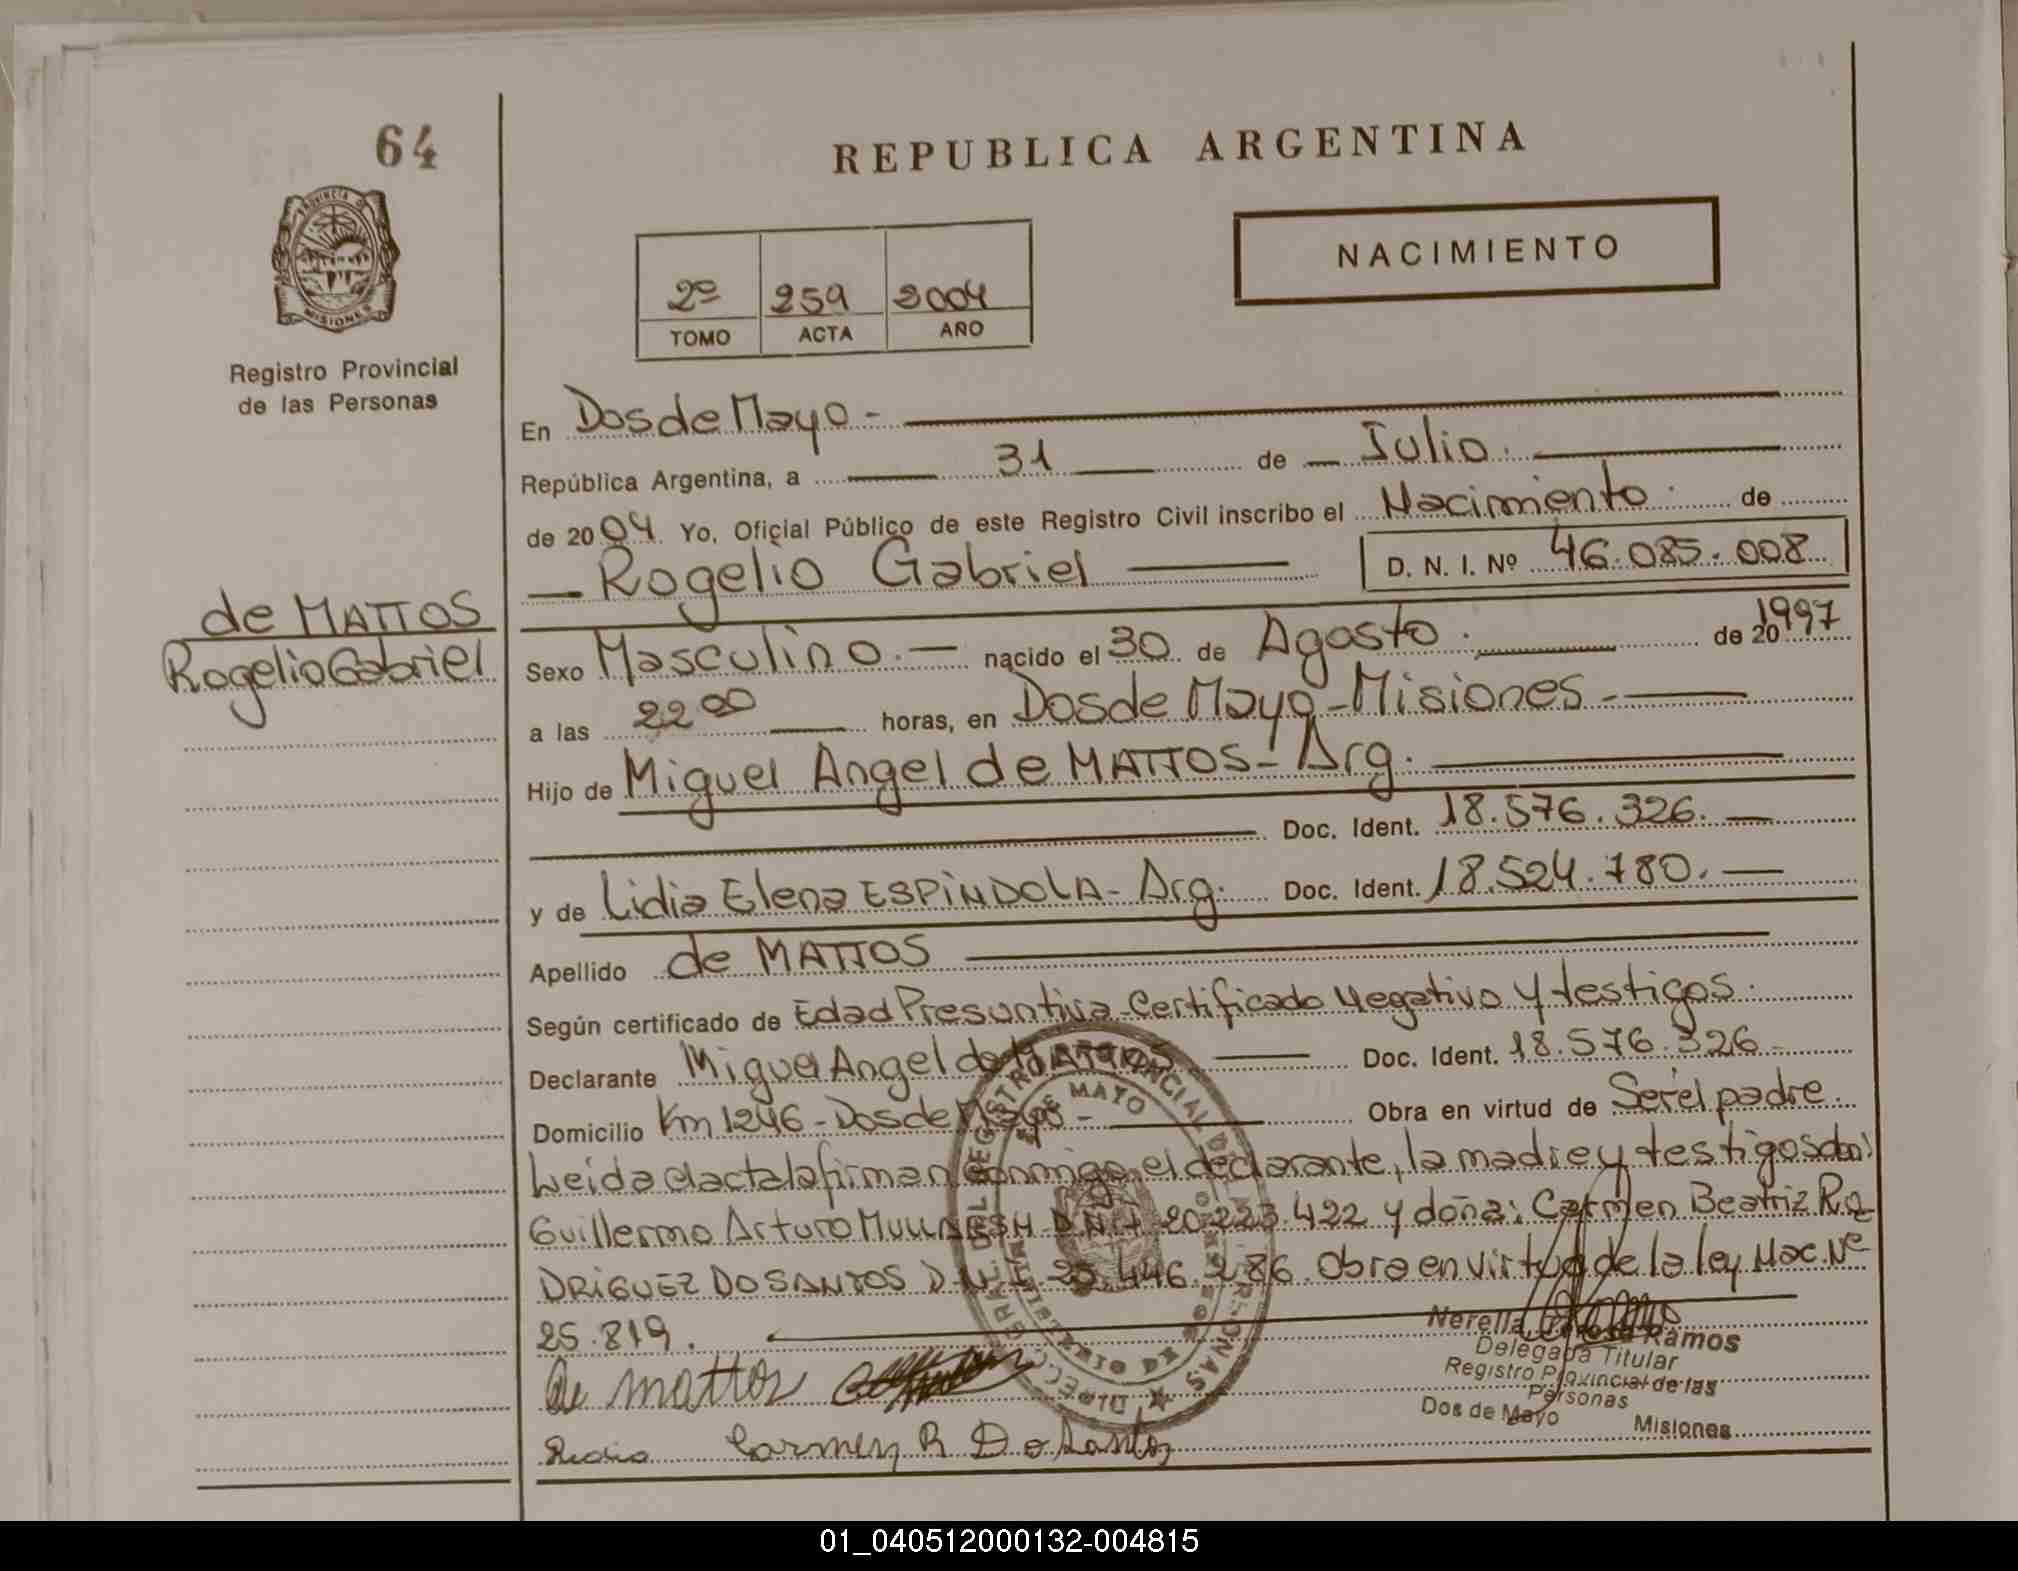 64
REPUBLICA ARGENTINA
PROVINCIA DE MISIONES
NACIMIENTO
2º 259 2004
TOMO ACTA AÑO
Registro Provincial
de las Personas
de MATTOS
Rogelio Gabriel
En Dos de Mayo -
República Argentina, a 31 de Julio.
de 2004. Yo, Oficial Público de este Registro Civil inscribo el Nacimiento. de
Rogelio Gabriel D. N. I. Nº 46.085.008
Sexo Masculino.- nacido el 30 de Agosto. de 20 1997
a las 22 00 horas, en Dos de Mayo - Misiones -
Hijo de Miguel Angel de MATTOS - Arg.
Doc. Ident. 18.576.326.
y de Lidia Elena ESPINDOLA - Arg. Doc. Ident. 18.524.780.
Apellido de MATTOS
Según certificado de Edad Presuntiva - Certificado Negativo y testigos.
Declarante Miguel Angel de MATTOS Doc. Ident. 18.576.326
Domicilio Km 1246 - Dos de Mayo - Obra en virtud de Ser el padre.
Leida el acta la firman conmigo, el declarante, la madre y testigos don:
Guillermo Arturo D.N.I. 20.223.422 y doña: Carmen Beatriz RO
DRIGUEZ DO SANTOS D.N.I. .446.286. Obra en virtud de la ley Nac. Nº
25.819.
de mattos
Lidia Carmen R Do Santos
Ramos
Delegada Titular
Registro Provincial de las
Personas
Dos de Mayo Misiones
01_040512000132-004815